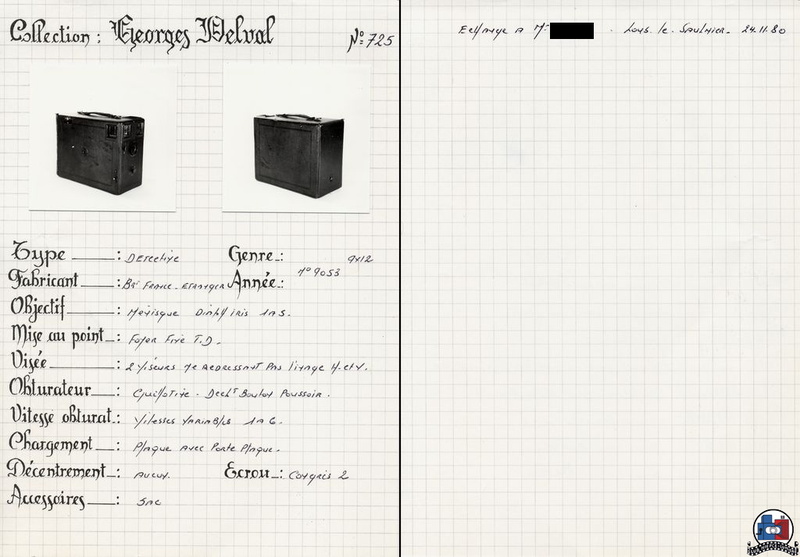 Collection: Georges Delval
Nº 725
Type : Détective Genre : 9x12
Fabricant : Bté France - Etranger Année : nº 9053
Objectif : Ménisque Diaph/ iris 1 à 5.
Mise au point : Foyer Fixe T.D.
Visée : 2 Viseurs ne redressant pas l'image H. et V.
Obturateur : Guillotine. Declt Bouton Poussoir.
Vitesse obturat. : Vitesses Variables 1 à 6.
Chargement : Plaque avec Porte Plaque.
Décentrement : Aucun. Ecrou : Congrès 2
Accessoires : Sac
Echange A Mr . Lons. le. Saulnier. 24.11.80